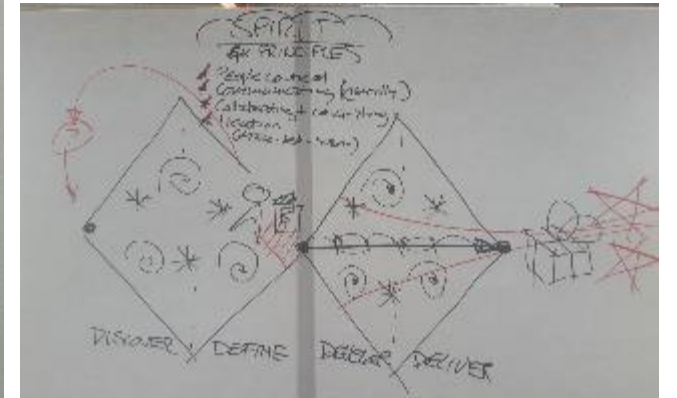 SPIRIT
4x PRINCIPLES
People centred
Communicating (visually)
Collaborating +
Iteration
DISCOVER / DEFINE
DEVELOP / DELIVER